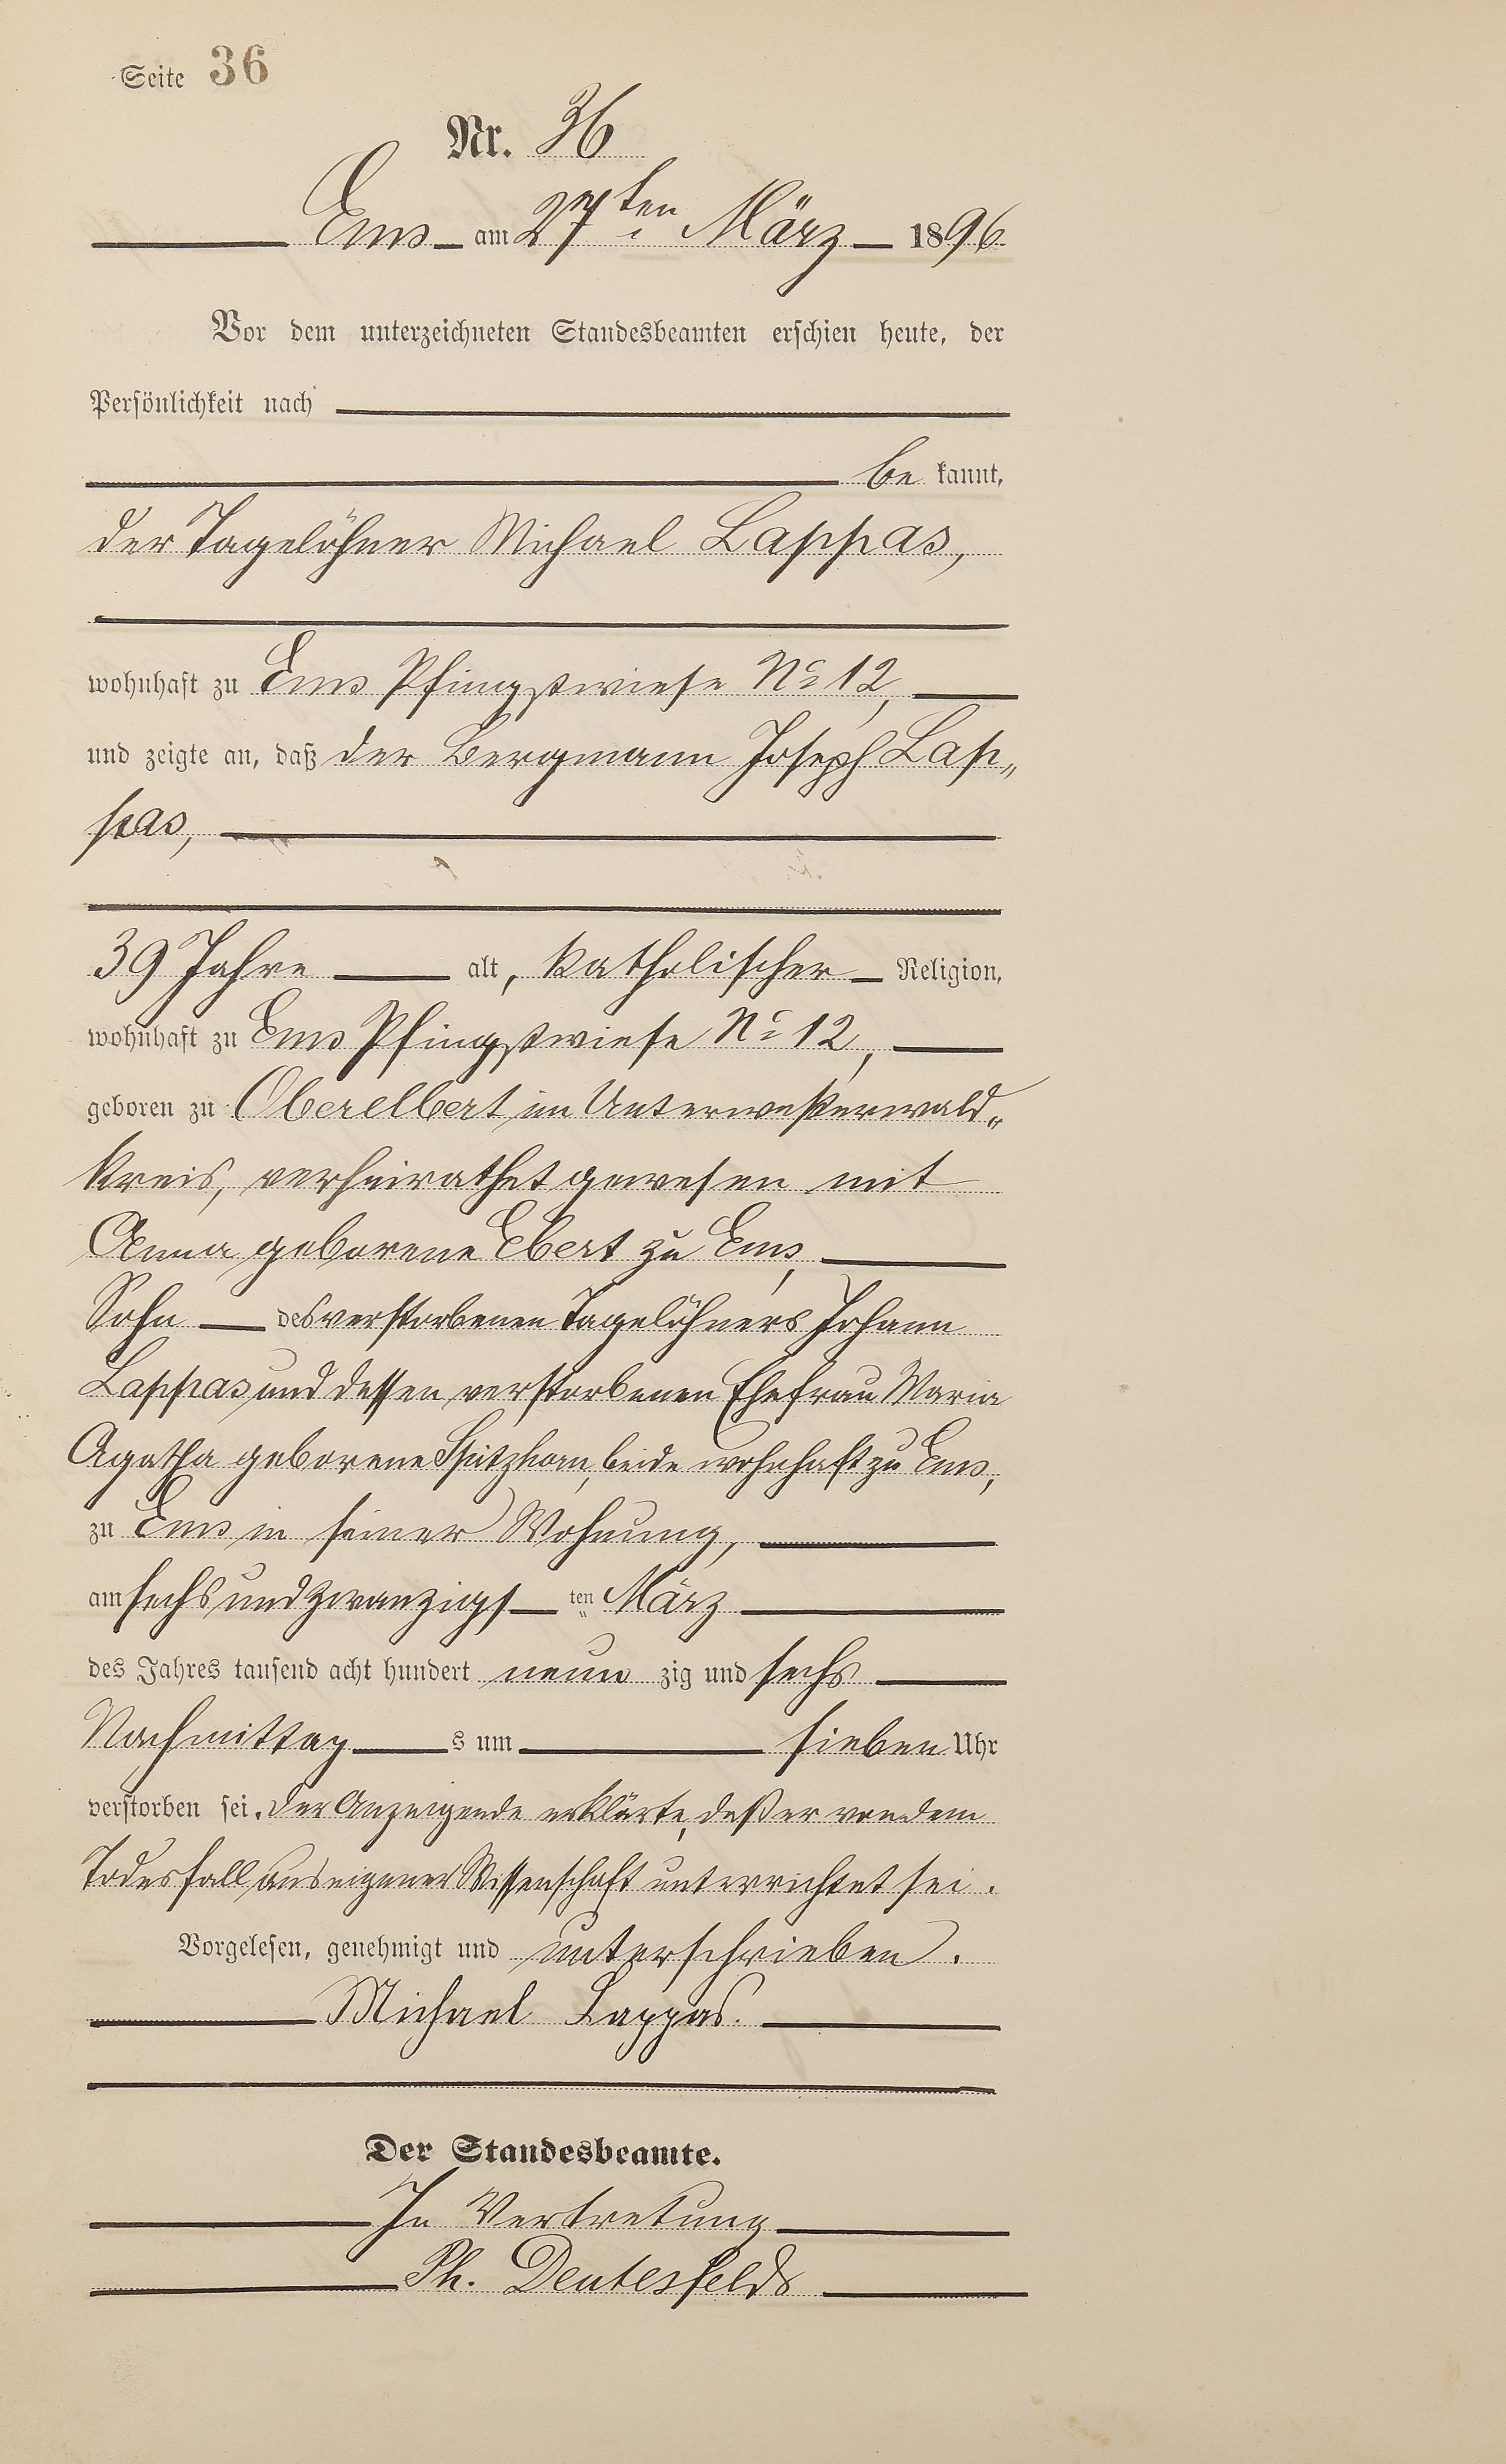 Seite 36
Nr. 36
Ems am 27ten März 1896
Vor dem unterzeichneten Standesbeamten erschien heute, der
Persönlichkeit nach
be kannt,
der Tagelöhner Michael Lappas,
wohnhaft zu Ems Pfingstwiese No 12,
und zeigte an, daß der Bergmann Joseph Lap„
pas,
39 Jahre alt, katholischer Religion,
wohnhaft zu Ems Pfingstwiese No 12,
geboren zu Oberelbert im Unterwesterwald„
kreis, verheirathet gewesen mit
Anna geborene Ebert zu Ems,
Sohn des verstorbenen Tagelöhners Johann
Lappas und dessen verstorbenen Ehefrau Maria
Agatha geborene Spitzhorn, beide wohnhaft zu Ems,
zu Ems in seiner Wohnung,
am sechs und zwanzigs ten März
des Jahres tausend acht hundert neun zig und sechs
Nachmittag s um sieben Uhr
verstorben sei. Der Anzeigende erklärte, daß er von dem
Todesfall aus eigener Wissenschaft unterrichtet sei.
Vorgelesen, genehmigt und unterschrieben.
Michael Lappas.
Der Standesbeamte.
In Vertretung
Ph. Deutesfelds